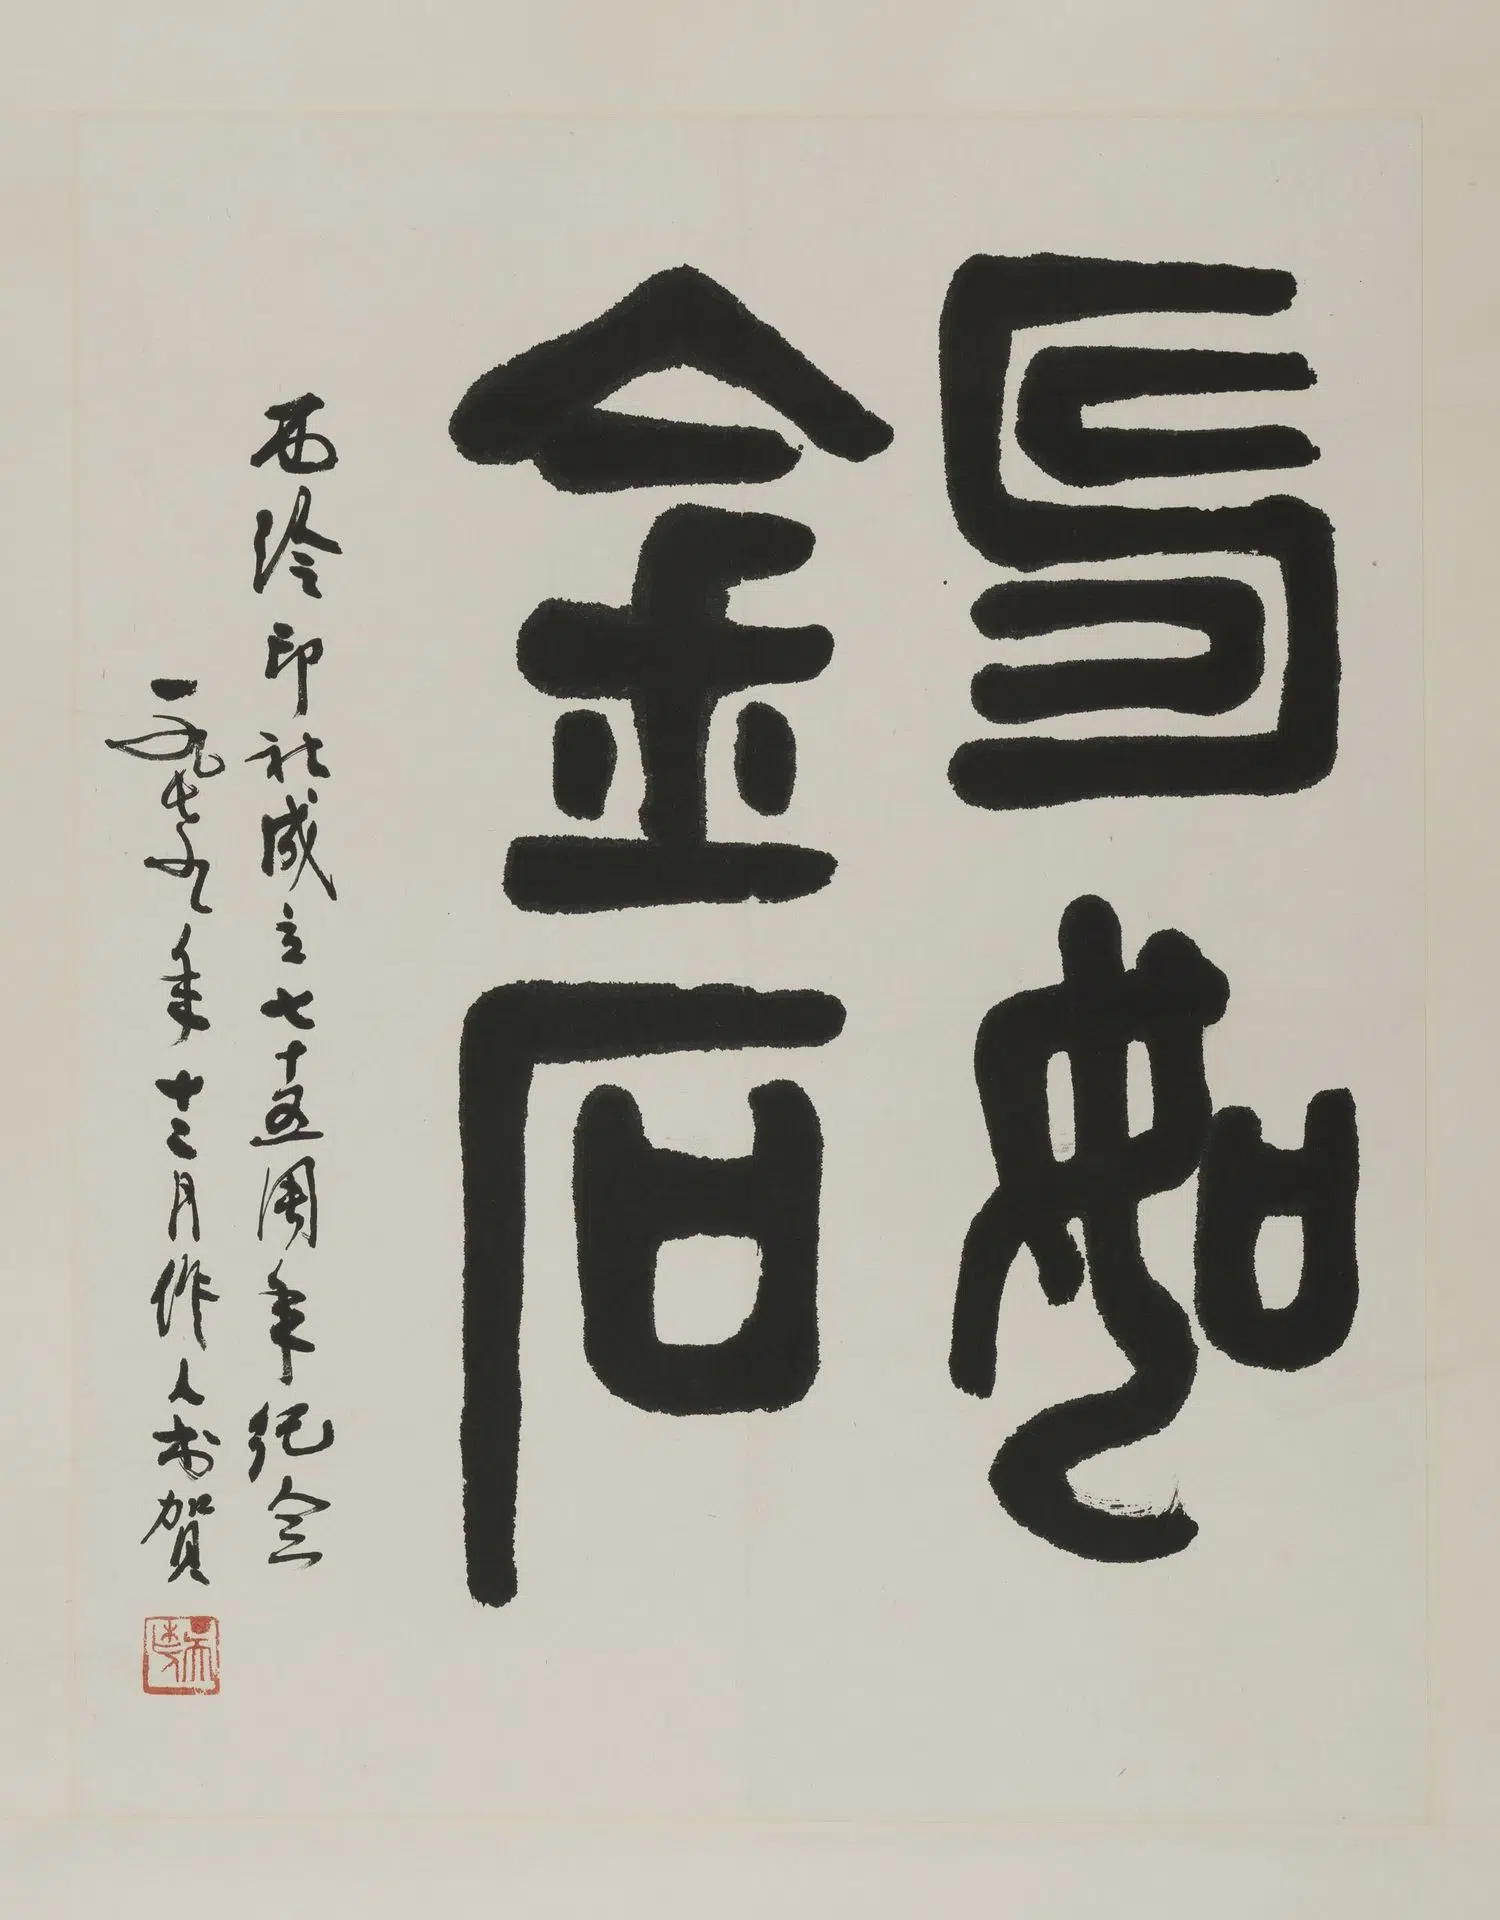 壽如
金石
西泠印社成立七十五周年纪念
一九七九年十二月作人书贺